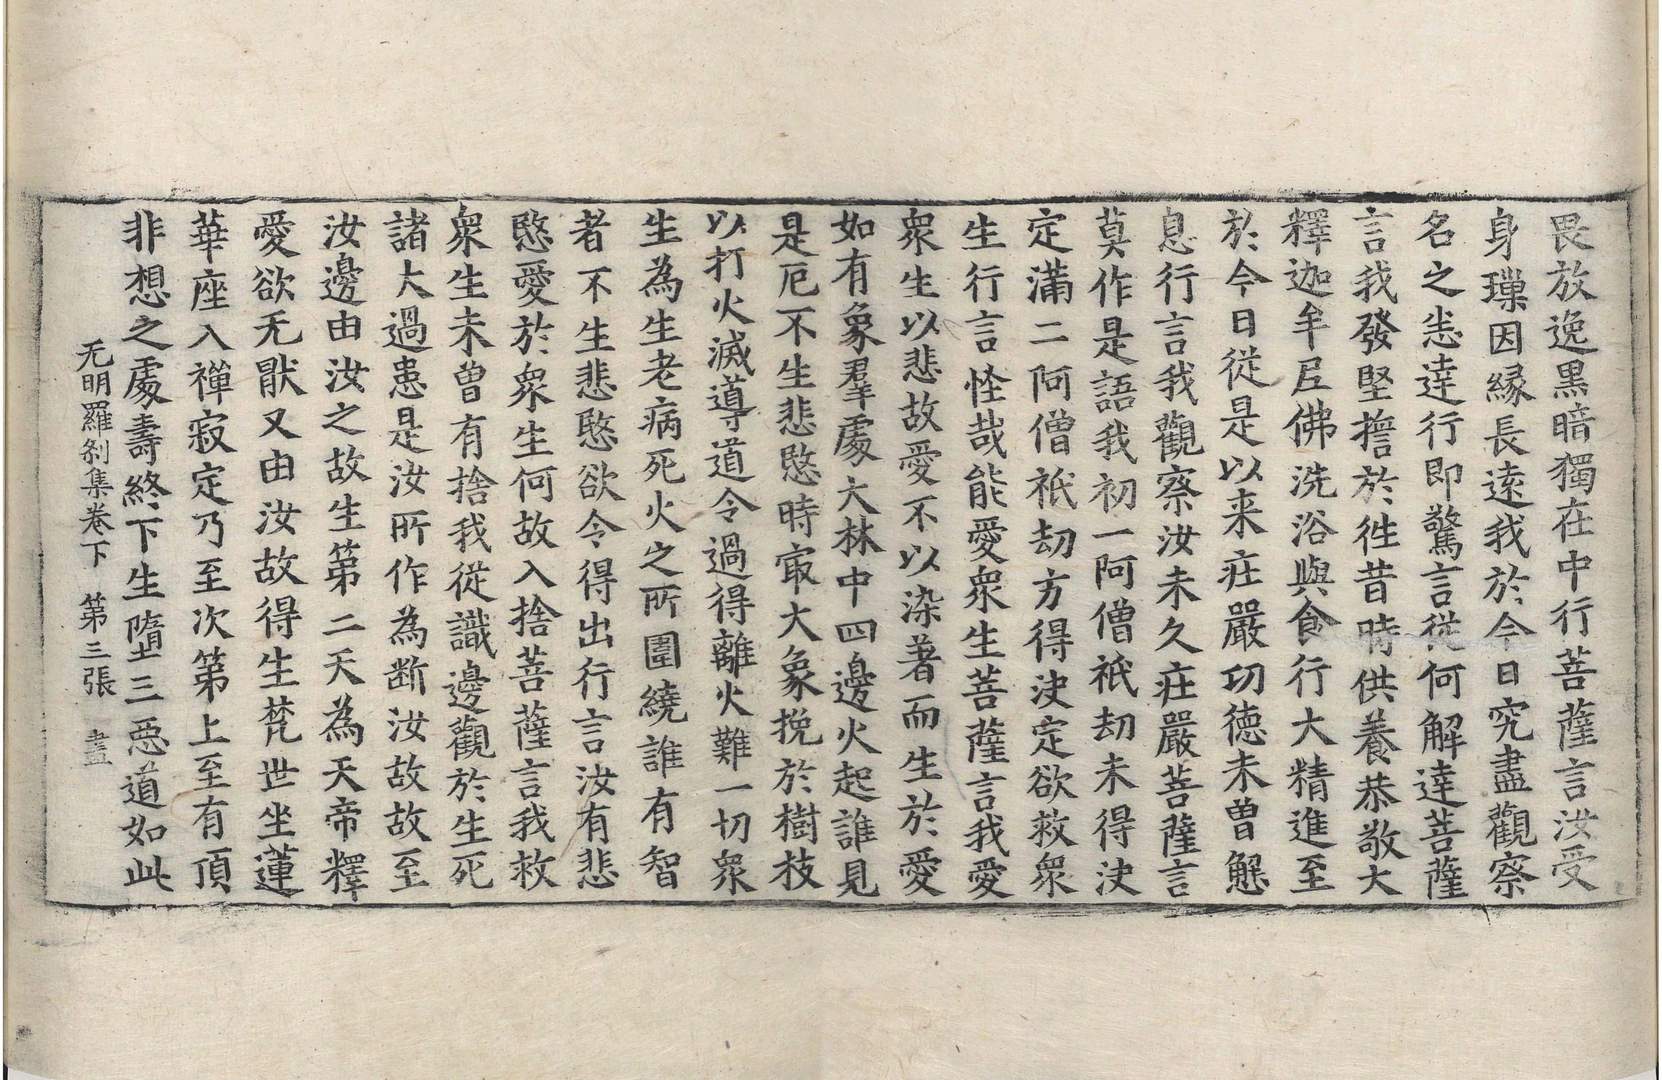 畏放逸黒暗獨在中行菩薩言汝受
身璅因縁長逺我於今日究盡觀察
名之恙達行即驚言從何解達菩薩
言我發堅擔於徃昔時供養恭敬大
釋迦牟𡰱佛洗浴與食行大精進至
於今日從是以来莊嚴㓛德未曽懈
息行言我觀察汝未久莊嚴菩薩言
莫作是語我初一阿僧祇劫未得决
定滿二阿僧祇劫方得决定欲救衆
生行言怪哉能愛衆生菩薩言我愛
衆生以悲故愛不以染著而生於愛
如有象羣處大林中四邊火起誰見
是厄不生悲愍時㝡大象挽於樹枝
以打火滅導道令過得離火難一切衆
生為生老病死火之所圍繞誰有智
者不生悲愍欲令得出行言汝有悲
愍愛於衆生何故入捨菩薩言我救
衆生未曽有捨我從識邊觀於生死
諸大過患是汝所作為断汝故故至
汝邊由汝之故生第二天為天帝釋
愛欲无猒又由汝故得生梵世坐蓮
華座入禪寂定乃至次第上至有頂
非想之處壽終下生墮三惡道如此
无明羅剎集卷下 第三張 盡